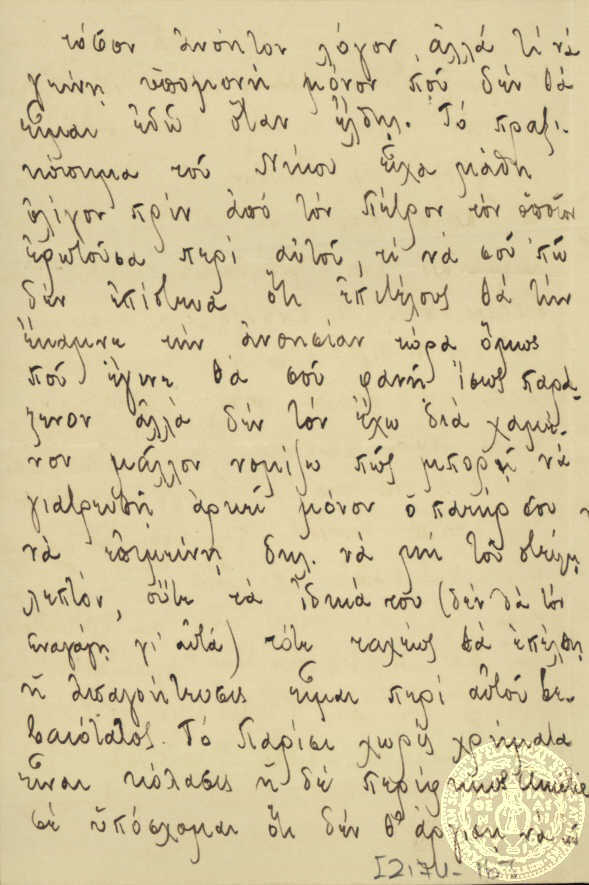 τόσον ἀνόητον λόγον, ἀλλά τί νά
γείνη ὑπομονή μόνον πού δέν θά
εἶμαι ἐδῶ ὅταν ἔλθῃς. Τό πραξι-
κόπημα τοῦ Νίκου εἶχα μάθη
ὀλίγον πρίν ἀπό τόν Πέτρον τόν ὁποῖον
ἐρωτοῦσα περί αὐτοῦ, τί νά σοῦ πῶ
δέν ἐπίστευα ὅτι ἐπιτέλους θά τήν
ἔκαμνε τήν ἀνοησίαν τώρα ὅμως
πού ἔγινε θά σοῦ φανῇ ἴσως παρά-
ξενον ἀλλά δέν τόν ἔχω διά χαμέ-
νον μᾶλλον νομίζω πῶς μπορεῖ νά
γιατρευθῇ ἀρκεῖ μόνον ὁ πατήρ σου
νά ἐπιμείνῃ δηλ. νά μή τοῦ στείλῃ
λεπτόν, οὔτε τά ἰδικά του (δέν θά τόν
ἐναγάγῃ γι' αὐτά) τότε ταχέως θά ἐπέλθῃ
ἡ ἀπαγοήτευσις εἶμαι περί αὐτοῦ βε-
βαιότατος. Τό Παρίσι χωρίς χρήματα
εἶναι κόλασις ἡ δέ περίφημος
σέ ὑπόσχομαι ὅτι δέν θ' ἀργήσῃ νά